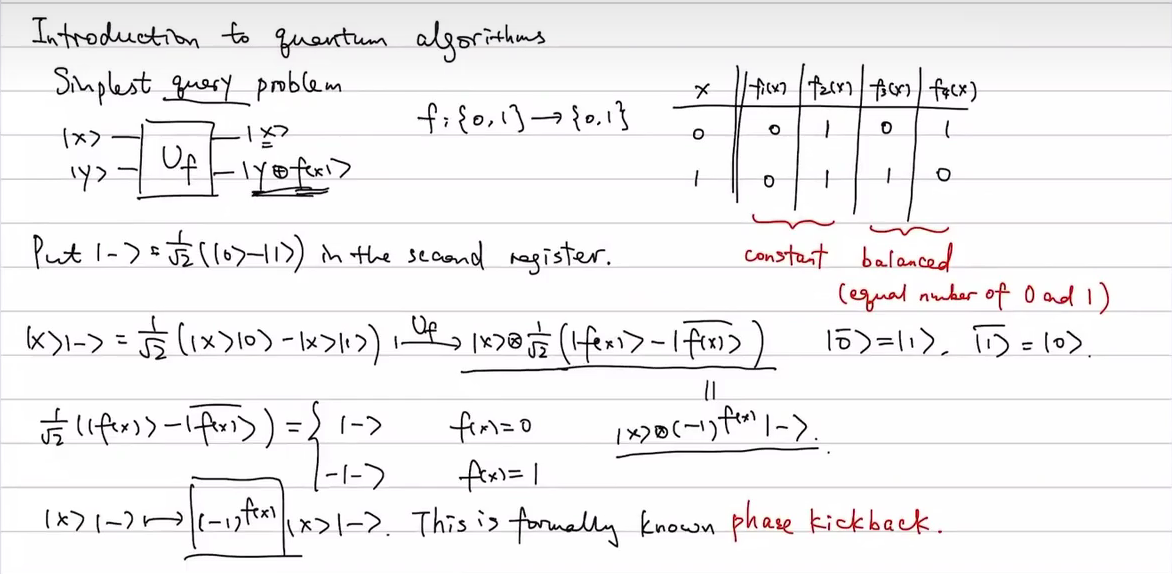 Introduction to quantum algorithms
Simplest query problem
|x> |x>
U_f
|y> |y⊕f(x)>
f:{0,1}→{0,1}
x f₁(x) f₂(x) f₃(x) f₄(x)
0 0 1 0 1
1 0 1 1 0
constant balanced
(equal number of 0 and 1)
Put |-> = 1/√2 (|0>-|1>) in the second register.
|x>|-> = 1/√2 (|x>|0> - |x>|1>) ↦^{U_f} |x>⊗1/√2 (|f(x)> - |\overline{f(x)}>) |\overline{0}>=|1>, |\overline{1}> = |0>.
||
1/√2 (|f(x)> - |\overline{f(x)}>) = { |-> f(x)=0 |x>⊗(-1)^{f(x)} |->.
-|-> f(x)=1
|x>|-> ↦ (-1)^{f(x)} |x>|->. This is formally known phase kickback.